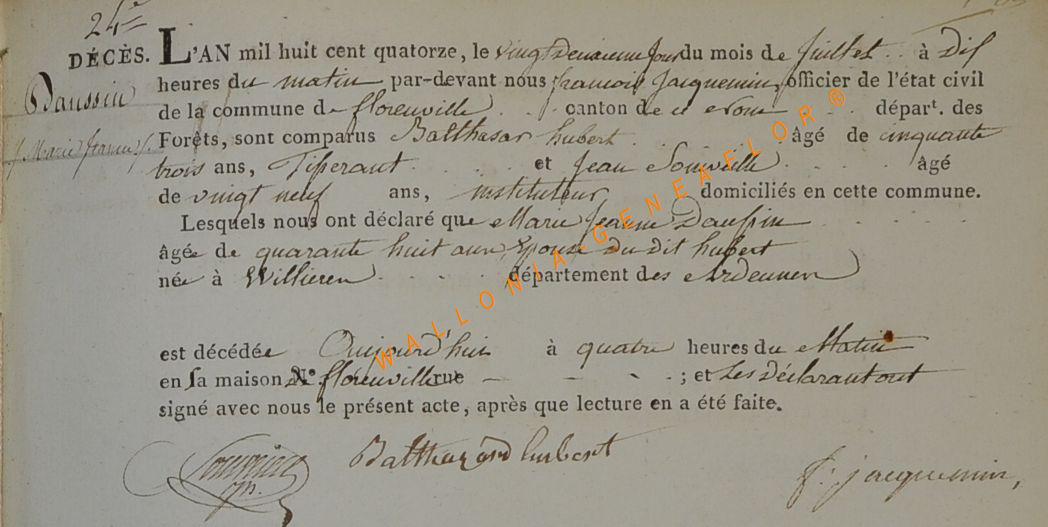 24e
DÉCÈS. L'AN mil huit cent quatorze, le vingt deuxieme jour du mois de juillet à dix
Daussin heures du matin par-devant nous francois Jacquemin, officier de l'état civil
de la commune de florenville canton de id départ. des
Marie jeanne Forêts, sont comparus Balthasar hubert âgé de cinquante
trois ans, Tisserant et jean Souville âgé
de vingt neuf ans, instituteur domiciliés en cette commune.
Lesquels nous ont déclaré que Marie jeanne Daussin
âgée de quarante huit ans, Epouse du dit hubert
née à Willieren département des Ardennen
est décédée Aujourd'hui à quatre heures du Matin
en sa maison N° florenville rue ; et Les déclarant ont
signé avec nous le présent acte, après que lecture en a été faite.
Balthazard hubert
f. jacquemin,
WALLONIA-GENEAFLOR ®